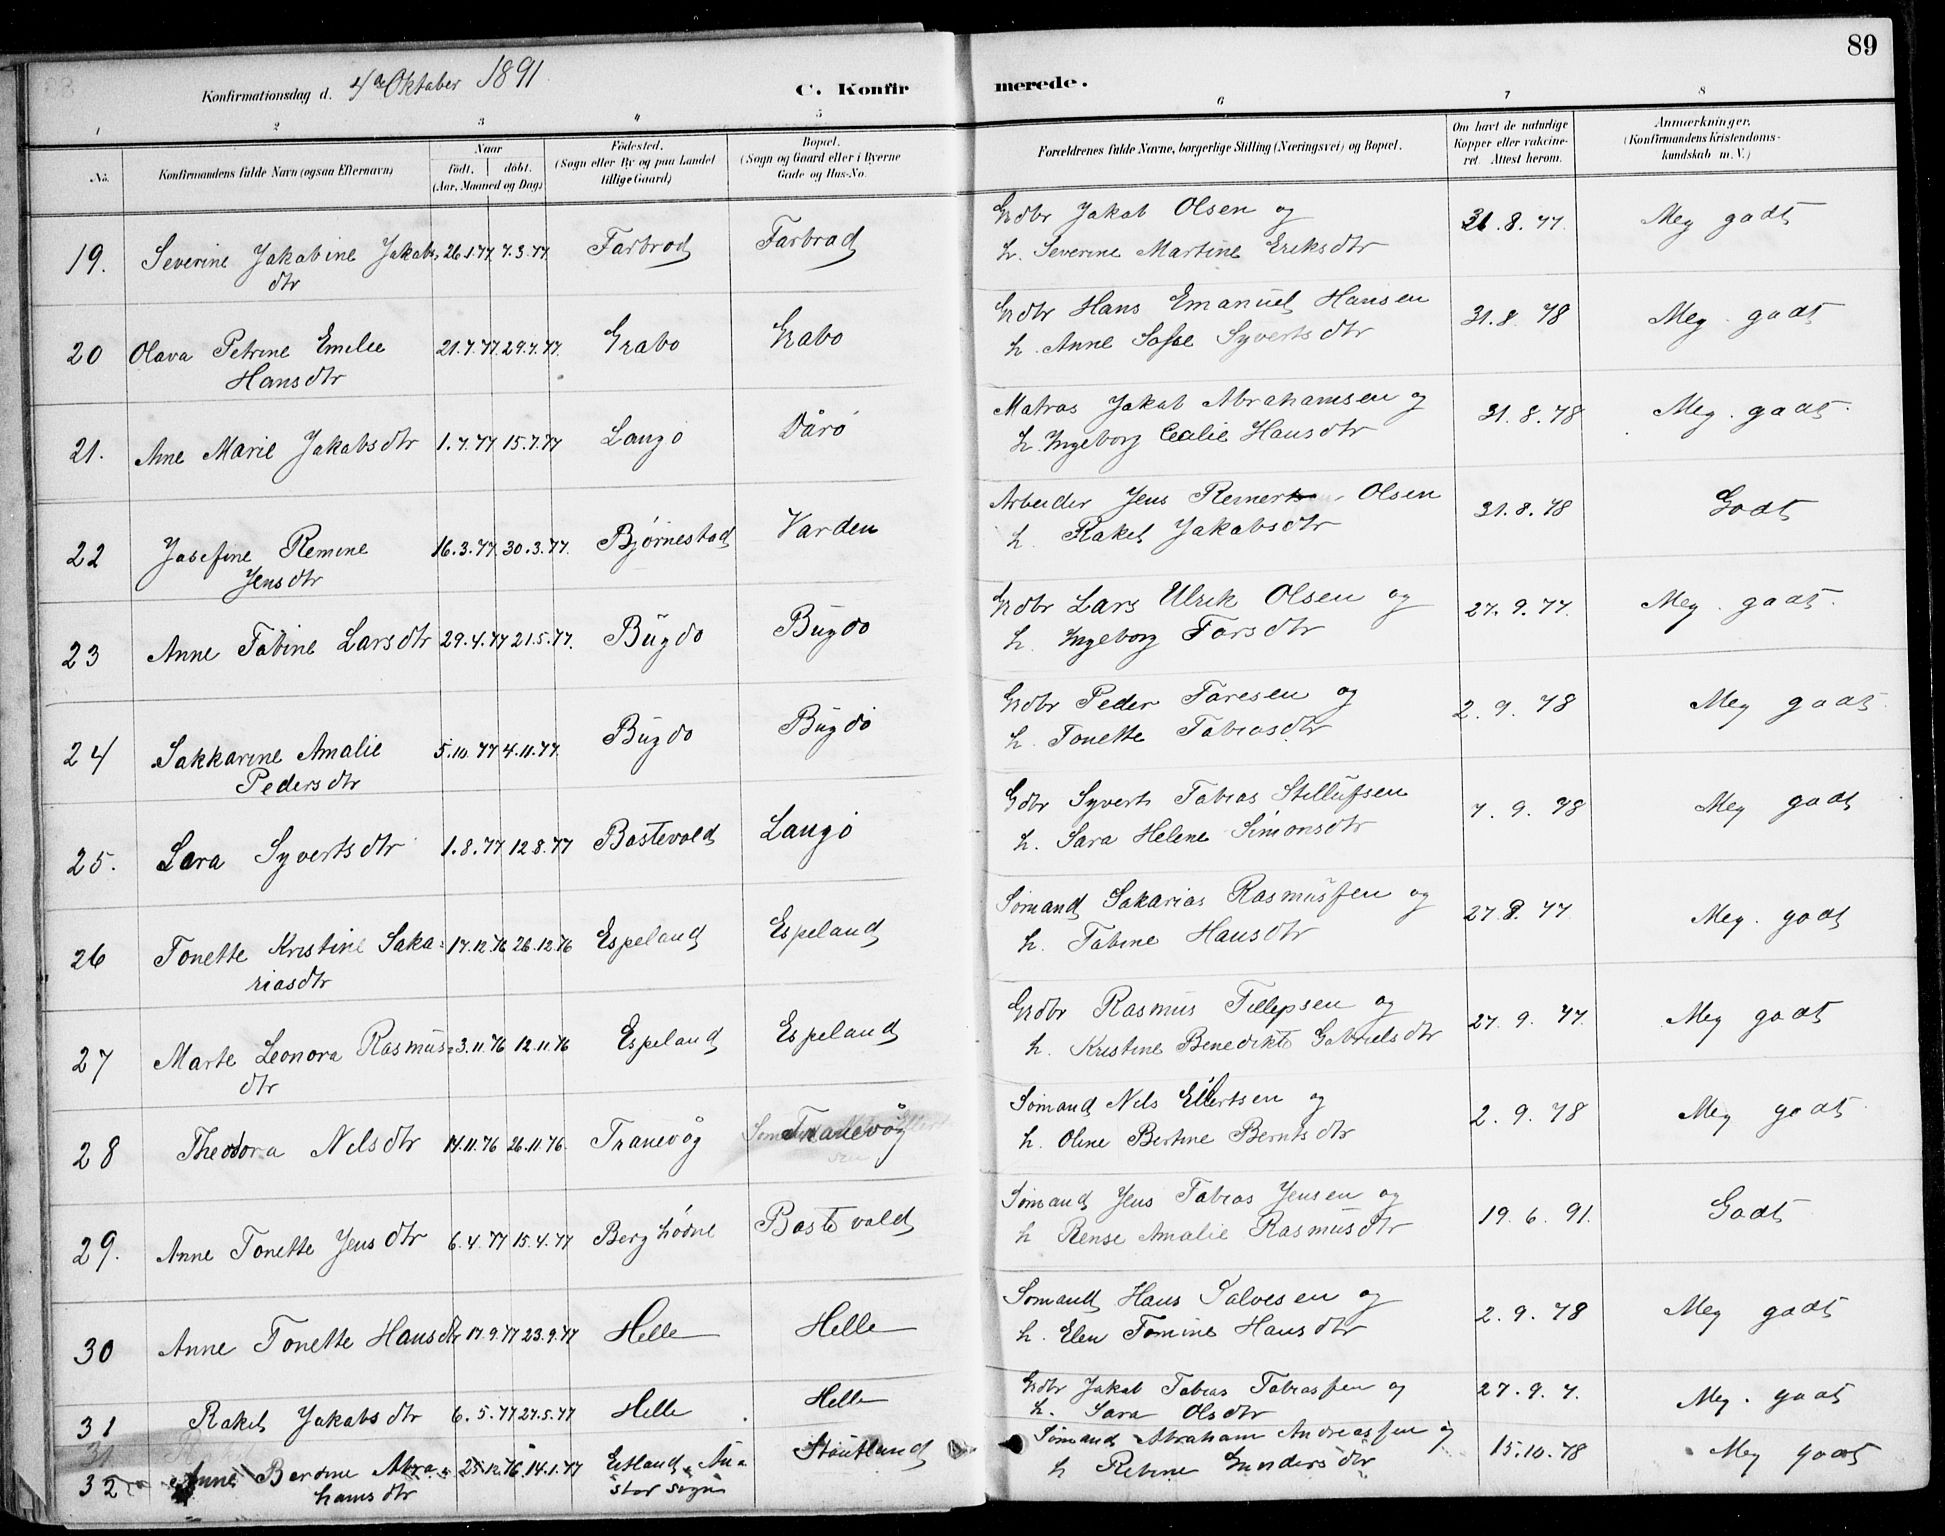 89
Konfirmationsdag d. 4de Oktober 1891.
C. Konfirmerede.
1 2 3 4 5 6 7 8
No.
Konfirmandens fulde Navn (ogsaa Efternavn)
Naar
født. døbt.
(Aar, Maaned og Dag)
Fødested.
(Sogn eller By og paa Landet
tillige Gaard)
Bopæl.
(Sogn og Gaard eller i Byerne
Gade og Hus-No.
Forældrenes fulde Navne, borgerlige Stilling (Næringsvei) og Bopæl.
Om havt de naturlige
Kopper eller vakcine-
ret. Attest herom.
Anmærkninger.
(Konfirmandens Kristendoms-
kundskab m. V.)
19. Severine Jakobine Jakobs 26.1.77 7.3.77 Farbrod Farbrod Grdbr Jakob Olsen og 31.8.77. Meg godt
dtr h. Severine Martine Eriksdtr
20 Olava Petrine Emilie 21.7.77 29.7.77. Grabo Grabo Grdbr Hans Emanuel Hansen 31.8.78 Meg. godt
Hansdtr h. Anne Sofie Syvertsdtr
21. Ane Marie Jakobsdtr 1.7.77 15.7.77 Langø Dårø Matros Jakob Abrahamsen og 31.8.78 Meg. godt.
h. Ingeborg Cecilie Hansdtr
22 Josefine Remine 16.3.77 30.3.77. Bjørnestad Varden Arbeider Jens Reinert Olsen 31.8.78 Godt
Jensdtr h. Rakel Jakobsdtr
23 Anne Tobine Larsdtr 29.4.77 21.5.77. Bugdø Bugdø Grdbr Lars Ulrik Olsen og 27.9.77. Meg. godt.
h. Ingeborg Tarsdtr
24 Sakkarine Amalie 5.10.77 4.11.77. Bugdø Bugdø Grdbr Peder Taresen og 2.9.78 Meg godt
Pedersdtr h. Tonette Tobiasdtr
25. Sara Syvertsdtr 1.8.77 12.8.77 Bostevold Langø Gdbr Syvert Tobias Stellufsen 7.9.78 Meg godt
h. Sara Helene Simonsdtr
26 Tonette Kristine Saka- 17.12.76 26.12.76 Espeland Espeland Sømand Sakarias Rasmussen og 27.8.77 Meg. godt
riasdtr h. Tobine Hansdtr
27 Marte Leonora Rasmus- 3.11.76 12.11.76 Espeland Espeland Grdbr Rasmus Tellepsen og 27.9.77. Meg godt
dtr h. Kristine Benedikte Gabrielsdtr
28 Theodora Nilsdtr 14.11.76 26.11.76. Tranevåg Tranevåg Sømand Nils Eilertsen og 2.9.78 Meg godt
h. Oline Bertine Berntsdtr
29. Anne Tonette Jensdtr 6.4.77 15.4.77 Berghødne Bostevold Sømand Jens Tobias Jensen og 19.6.91. Godt
h Rense Amalie Rasmusdtr
30 Anne Tonette Hansdtr 17.9.77 23.9.77 Helle Helle Sømand Hans Salvesen og 2.9.78 Meg godt
h. Elen Tomine Hansdtr
31 Rakel Jakobsdtr 6.5.77 27.5.77 Helle Helle Grdbr Jakob Tobias Tobiassen og 27.9.7. Meg. godt
h. Sara Olsdtr
32 Anne Berdine Abra- 25.12.76 14.1.77 Estland, Au- Støutland Sømand Abraham Andreassen og 15.10.78 Meg godt
hamsdtr stør sogn h Rebine Gundersdtr